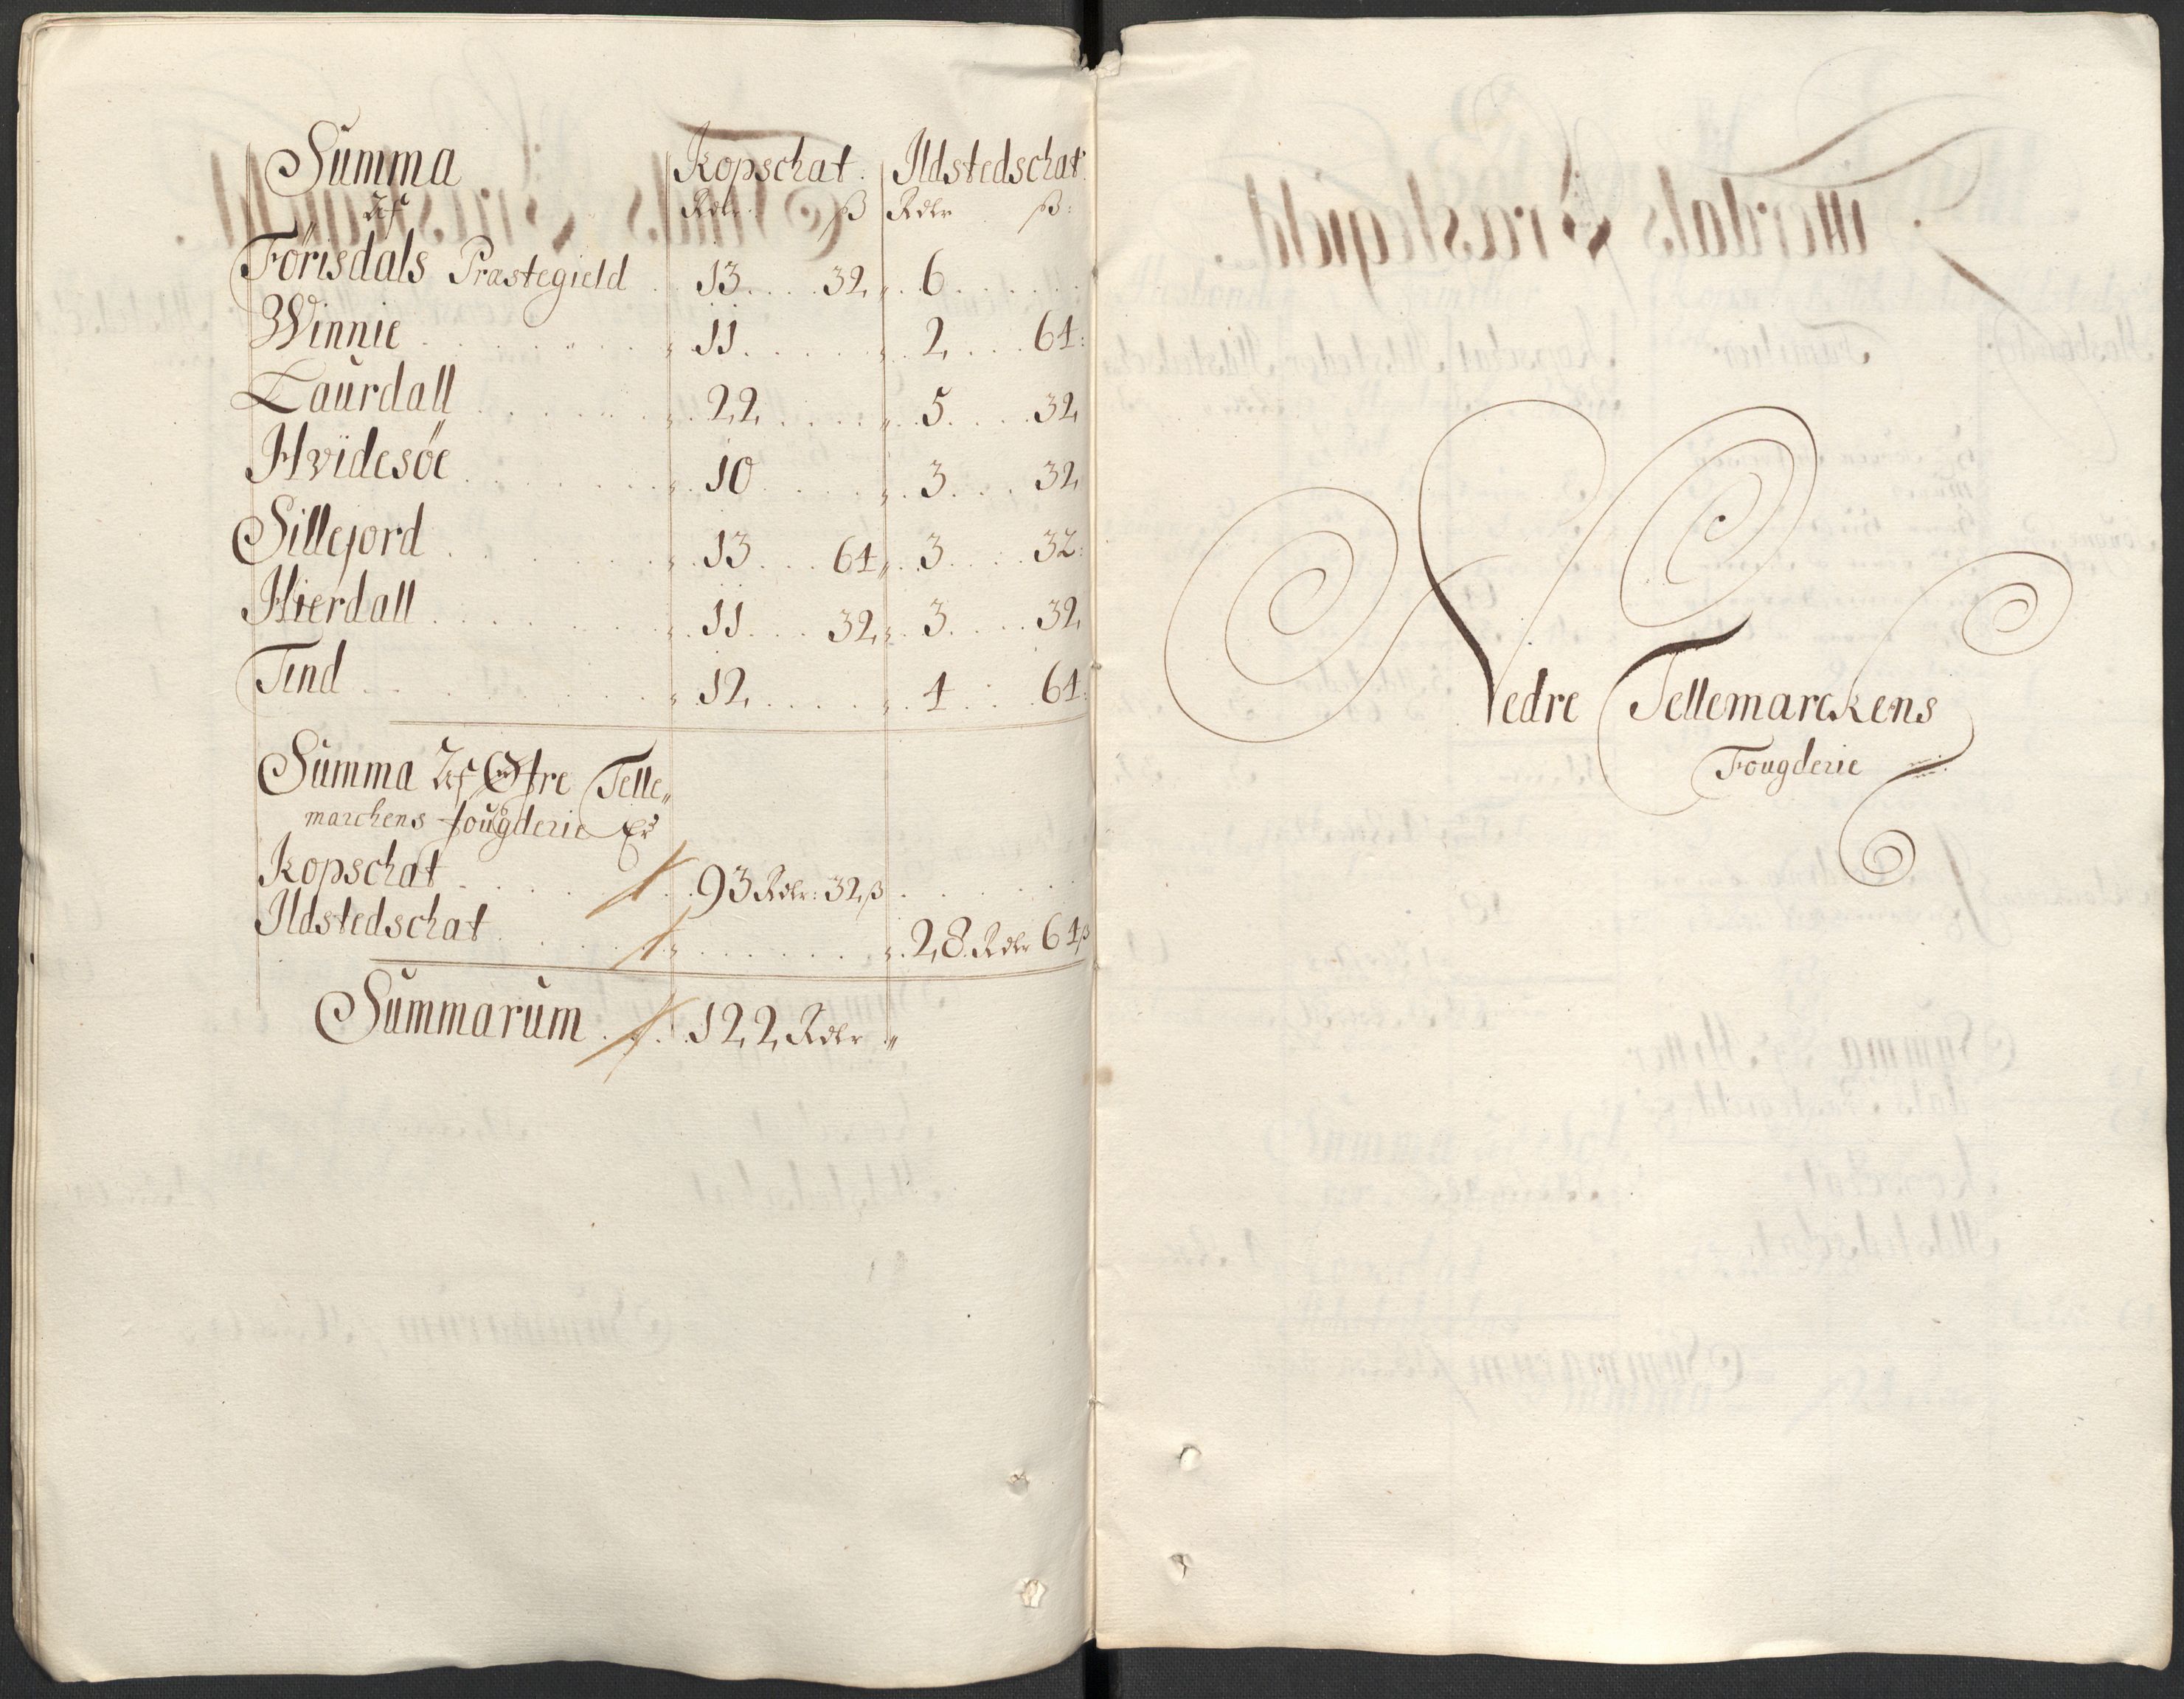 Summa Kopschat. Ildstedschat.
Af Rdlr ß Rdlr ß:
Förisdals Præstegield .. 13.... 32,,.. 6.......
Winnie ........ 11...... 2,... 64:
Laurdall ....... 22...... 5.... 32
Hvidesöe ....... 10...... 3... 32
Sillejord ....... 13... 64,,.. 3.... 32:
Hierdall ........ 11... 32,,.. 3.... 32
Tind ........ 12....... 4... 64:
Summa Af Øfre Telle„
marchens fougderie Er
Kopschat ....... 93 Rdlr: 32 ß .......
Ildstedschat ............. 28 Rdlr 64 ß
Summarum ... 122 Rdlr „
Nedre Tellemarckens
Fougderie